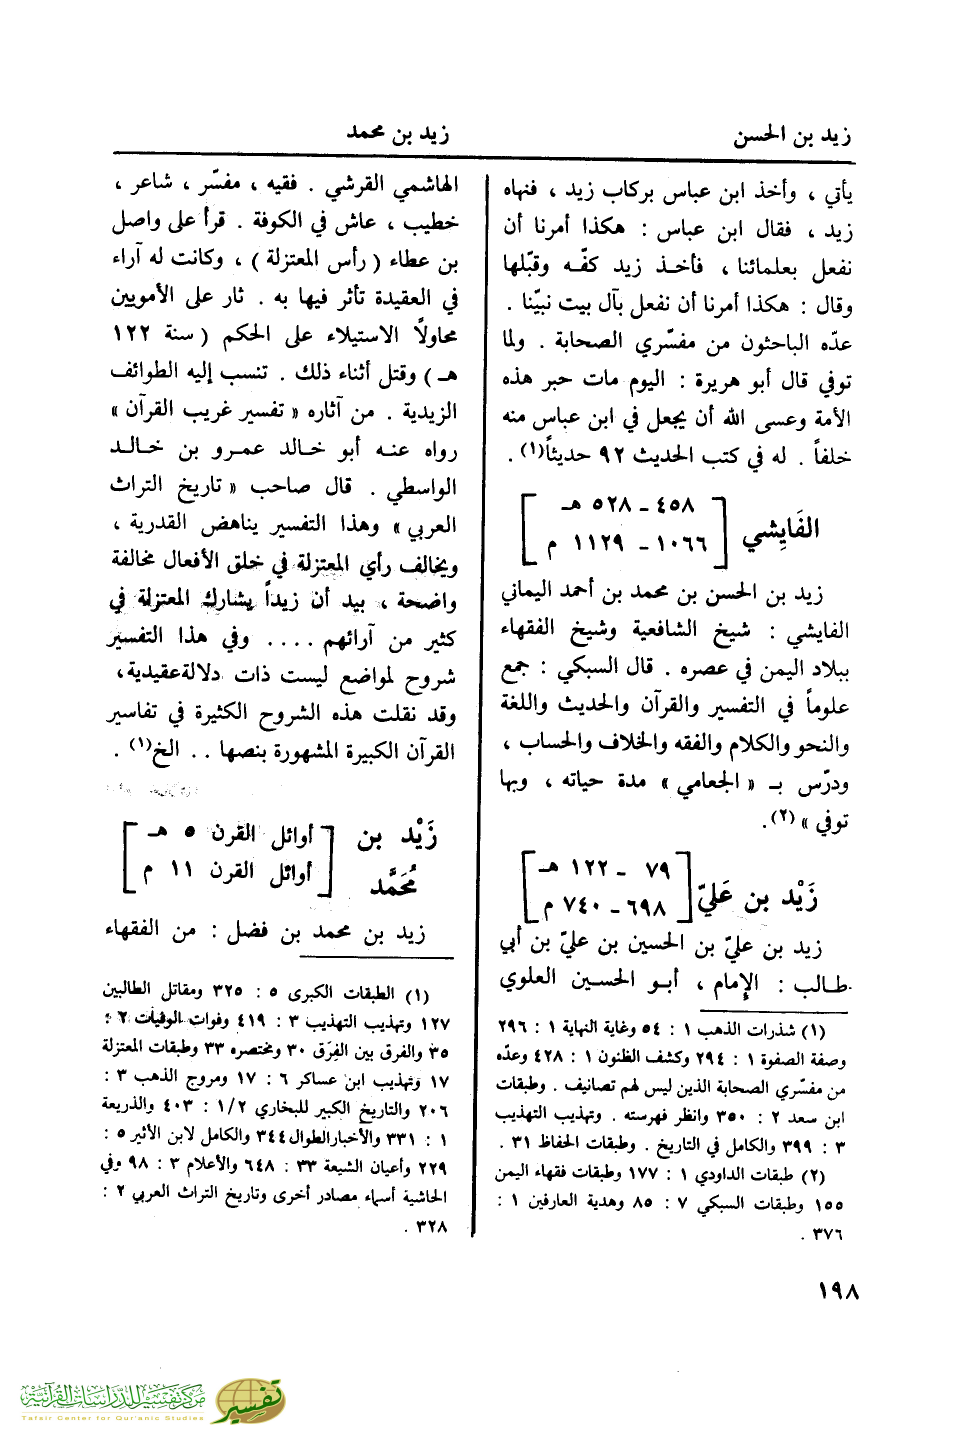 زيد بن الحسن
زيد بن محمد
يأتي ، وأخذ ابن عباس بركاب زيد ، فنهاه
زيد ، فقال ابن عباس : هكذا أمرنا أن
نفعل بعلمائنا ، فأخذ زيد كفّه وقبّلها
وقال : هكذا أمرنا أن نفعل بآل بيت نبيّنا .
عدّه الباحثون من مفسّري الصحابة . ولما
توفي قال أبو هريرة : اليوم مات حبر هذه
الأمة وعسى الله أن يجعل في ابن عباس منه
خلفاً . له في كتب الحديث ٩٢ حديثاً(١) .
الفَايِشي [ ٤٥٨ - ٥٢٨ هـ
١٠٦٦ - ١١٢٩ م ]
زيد بن الحسن بن محمد بن أحمد اليماني
الفايشي : شيخ الشافعية وشيخ الفقهاء
ببلاد اليمن في عصره . قال السبكي : جمع
علوماً في التفسير والقرآن والحديث واللغة
والنحو والكلام والفقه والخلاف والحساب ،
ودرّس بـ « الجعامي » مدة حياته ، وبها
توفي » (٢).
زَيْد بن عَليّ [ ٧٩ - ١٢٢ هـ
٦٩٨ - ٧٤٠ م ]
زيد بن عليّ بن الحسين بن عليّ بن أبي
طالب : الإمام ، أبو الحسين العلوي
(١) شذرات الذهب ١ : ٥٤ وغاية النهاية ١ : ٢٩٦
وصفة الصفوة ١ : ٢٩٤ وكشف الظنون ١ : ٤٢٨ وعدّه
من مفسّري الصحابة الذين ليس لهم تصانيف . وطبقات
ابن سعد ٢ : ٣٥٠ وانظر فهرسته . وتهذيب التهذيب
٣ : ٣٩٩ والكامل في التاريخ . وطبقات الحفاظ ٣١ .
(٢) طبقات الداودي ١ : ١٧٧ وطبقات فقهاء اليمن
١٥٥ وطبقات السبكي ٧ : ٨٥ وهدية العارفين ١ :
٣٧٦ .
الهاشمي القرشي . فقيه ، مفسّر ، شاعر ،
خطيب ، عاش في الكوفة . قرأ على واصل
بن عطاء ( رأس المعتزلة ) ، وكانت له آراء
في العقيدة تأثر فيها به . ثار على الأمويين
محاولاً الاستيلاء على الحكم ( سنة ١٢٢
هـ ) وقتل أثناء ذلك . تنسب إليه الطوائف
الزيدية . من آثاره « تفسير غريب القرآن »
رواه عنه أبو خالد عمرو بن خالد
الواسطي . قال صاحب « تاريخ التراث
العربي » وهذا التفسير يناهض القدرية ،
ويخالف رأي المعتزلة في خلق الأفعال مخالفة
واضحة ، بيد أن زيداً يشارك المعتزلة في
كثير من آرائهم .... وفي هذا التفسير
شروح لمواضع ليست ذات دلالة عقيدية،
وقد نقلت هذه الشروح الكثيرة في تفاسير
القرآن الكبيرة المشهورة بنصها . . الخ(١) .
زَيْد بن [ أوائل القرن ٥ هـ
مُحَمَّد أوائل القرن ١١ م ]
زيد بن محمد بن فضل : من الفقهاء
(١) الطبقات الكبرى ٥ : ٣٢٥ ومقاتل الطالبين
١٢٧ وتهذيب التهذيب ٣ : ٤١٩ وفوات الوفيات ٢ :
٣٥ والفرق بين الفِرَق ٣٠ ومختصره ٣٣ وطبقات المعتزلة
١٧ وتهذيب ابن عساكر ٦ : ١٧ ومروج الذهب ٣ :
٢٠٦ والتاريخ الكبير للبخاري ١/٢ : ٤٠٣ والذريعة
١ : ٣٣١ والأخبار الطوال ٣٤٤ والكامل لابن الأثير ٥ :
٢٢٩ وأعيان الشيعة ٣٣ : ٦٤٨ والأعلام ٣ : ٩٨ وفي
الحاشية أسماء مصادر أخرى وتاريخ التراث العربي ٢ :
٣٢٨ .
١٩٨
مركز تفسير للدراسات القرآنية
Tafsir Center for Qur'anic Studies
تفسير